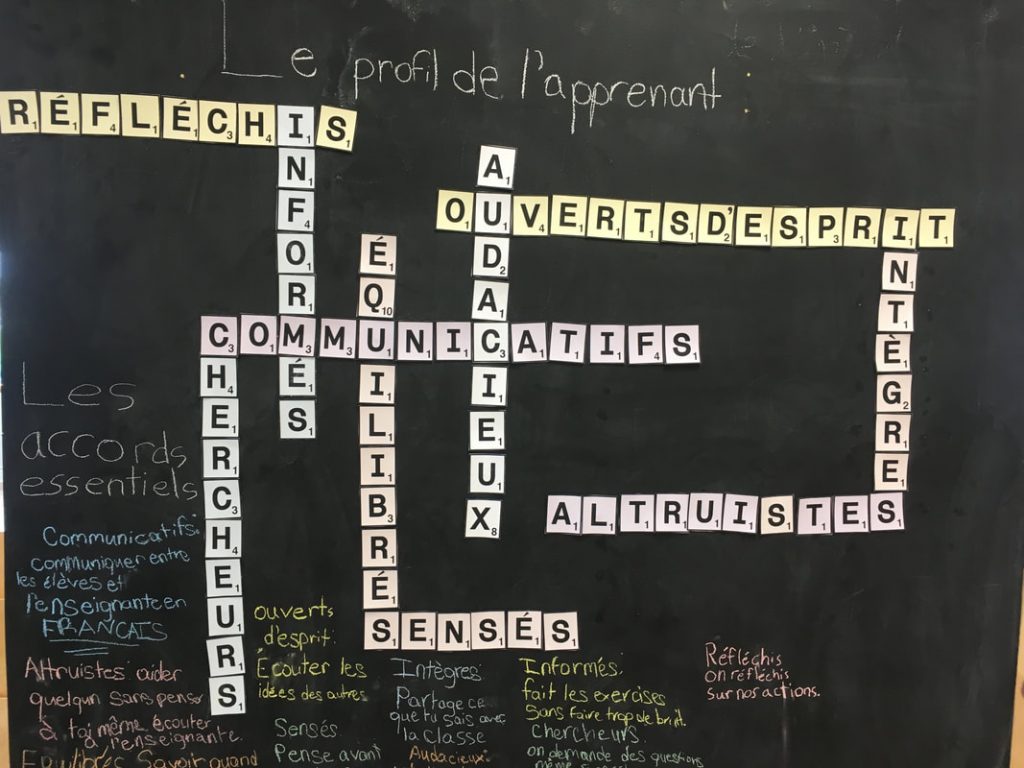 Le profil de l'apprenant
RÉFLÉCHIS
INFORMÉS
AUDACIEUX
OUVERTS D'ESPRIT
INTÈGRES
ÉQUILIBRÉS
COMMUNICATIFS
CHERCHEURS
ALTRUISTES
SENSÉS
Les
accords
essentiels
Communicatifs:
communiquer entre
les élèves et
l'enseignante en
FRANCAIS
Altruistes aider
quelqun sans penser
à toi même, écouter
à l'enseignante.
Equilibrés Savoir quand
ouverts
d'esprit:
Écouter les
idées des autres
Sensés
Pense avant
Intègres
Partage ce
que tu sais avec
la classe
Audacieux:
Informés:
fait les exercises
Sans faire trop de bruit.
chercheurs
on demande des questions
Réfléchis
on réfléchis
sur nos actions.